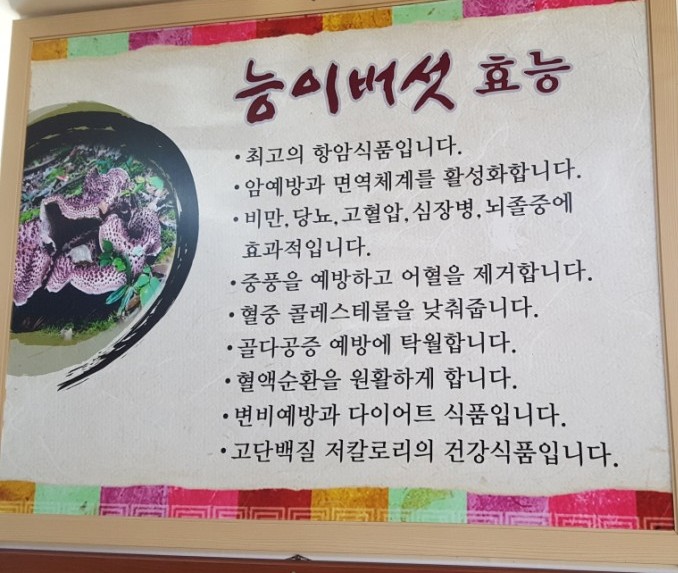 능이버섯 효능
•최고의 항암식품입니다.
•암예방과 면역체계를 활성화합니다.
•비만,당뇨,고혈압,심장병,뇌졸중에
효과적입니다.
•중풍을 예방하고 어혈을 제거합니다.
•혈중 콜레스테롤을 낮춰줍니다.
•골다공증 예방에 탁월합니다.
•혈액순환을 원활하게 합니다.
•변비예방과 다이어트 식품입니다.
•고단백질 저칼로리의 건강식품입니다.